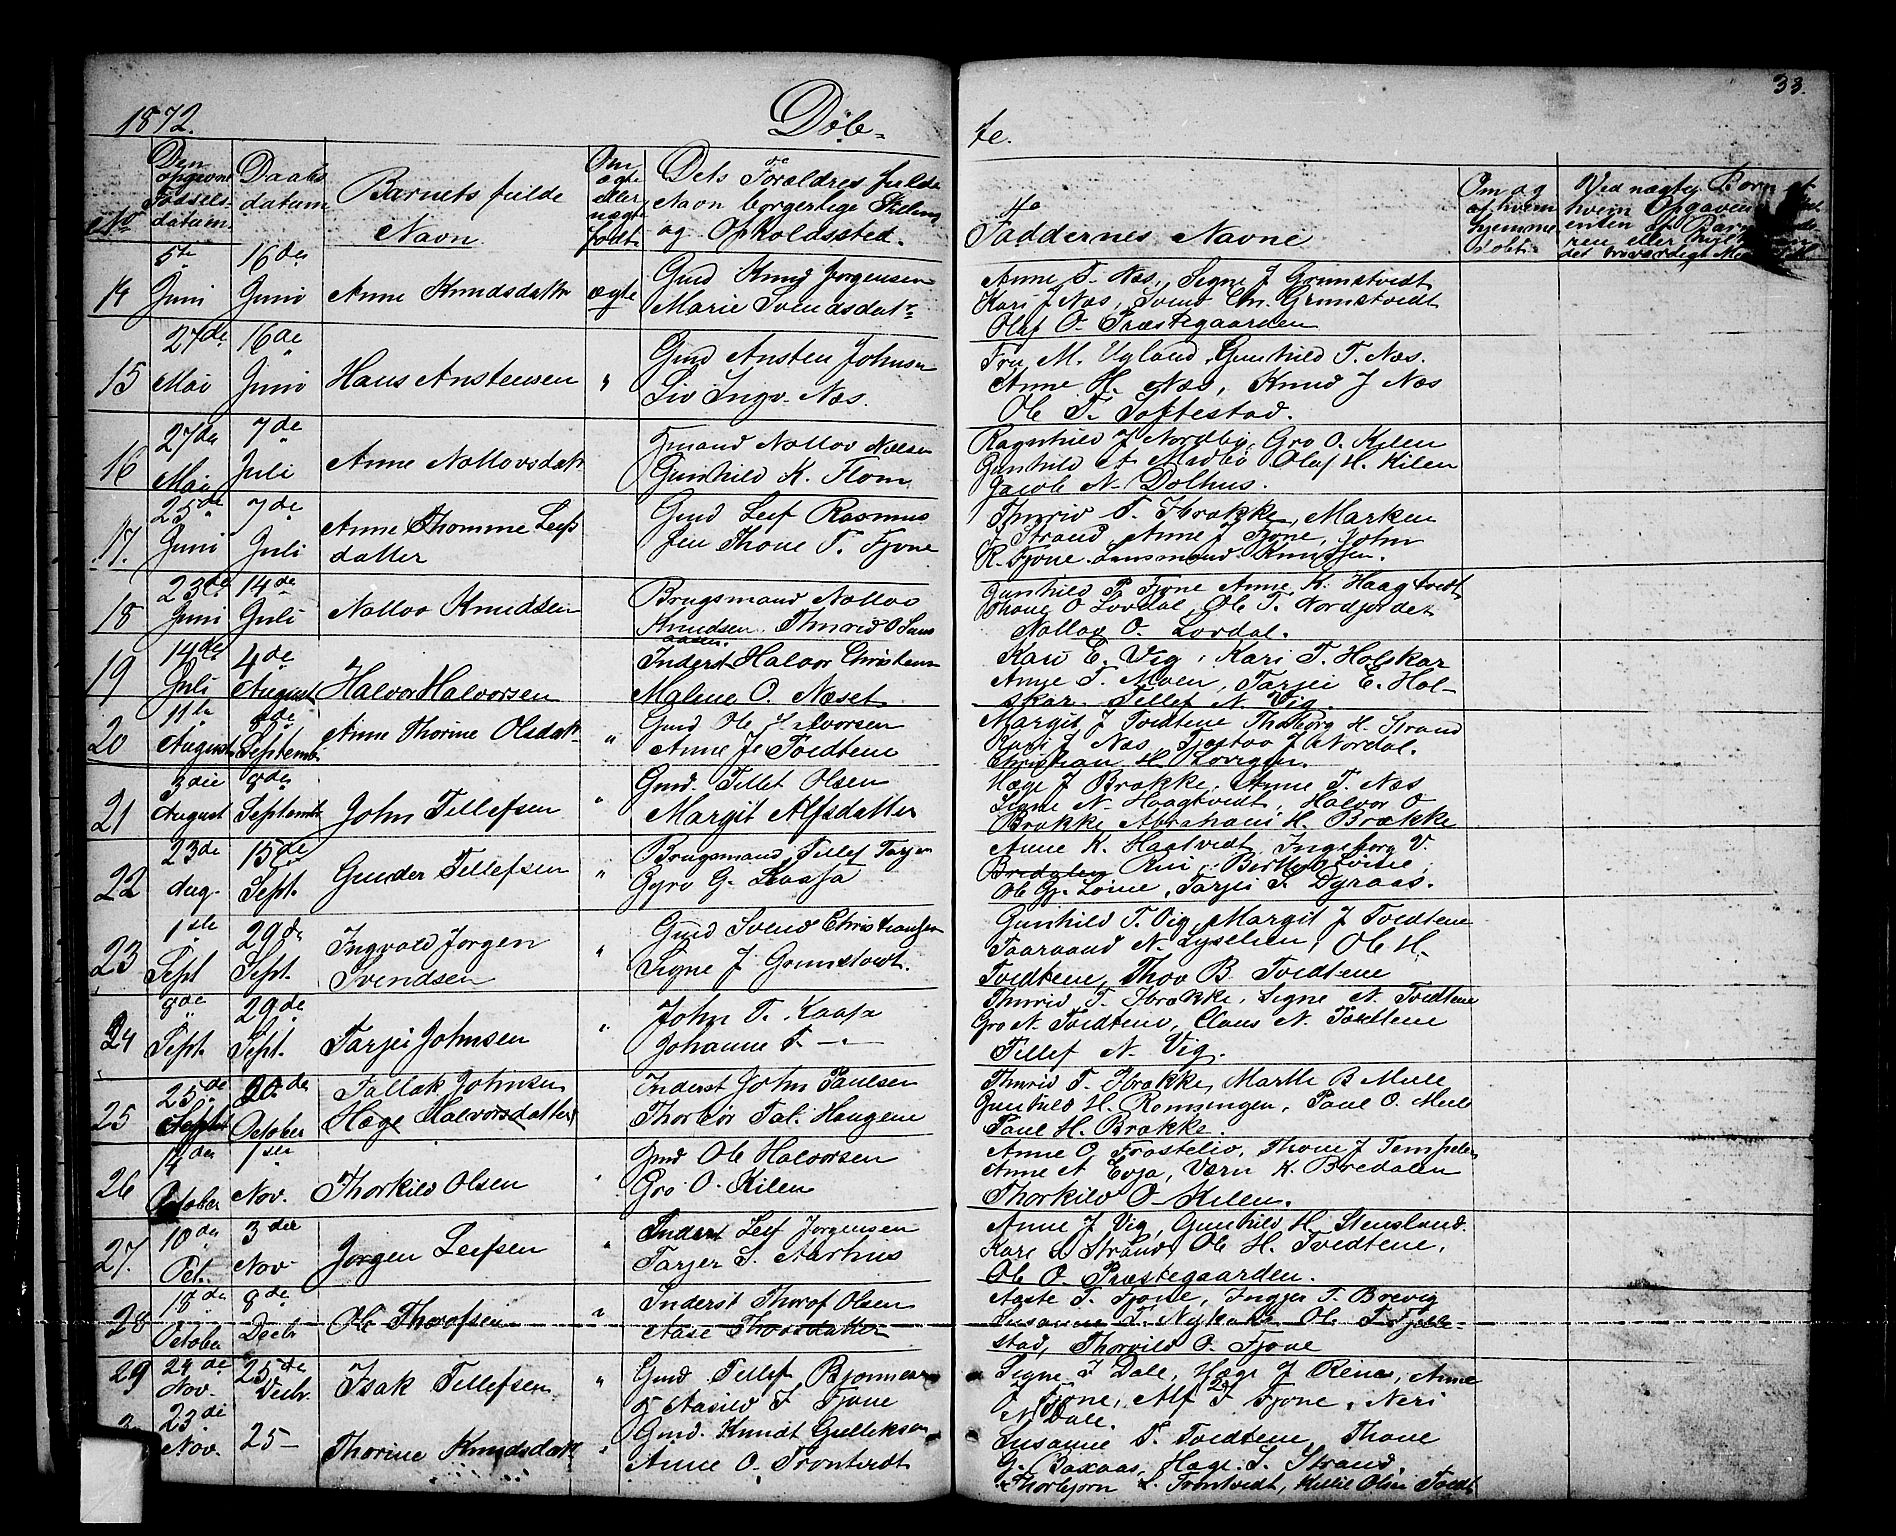 33.
1872. Døb-
te.
No
Den opgivne Fødsels-datum.
Daabs datum
Barnets fulde Navn
Om ægte eller uægte født
Dets Forældres fulde Navn borgerlige Stilling og Opholdssted.
Faddernes Navne
Om og af hvem hjemmedøbt
14
5te Juni
16de Juni
Anne Knudsdatr
ægte
Gmd Knud Jørgensen
Marie Svendsdatr
Anne T. Næs, Signe J Grimstvedt
Kari J Næs, Svend Chr. Grimstvedt
Olaf O. Præstegaarden
15
27de Mai
16de Juni
Hans Anstensen
"
Gmd Ansten Johnsen
Liv Ingv. Næs.
Fru M. Ugland, Gunhild T. Næs.
Anne H. Næs, Knud J Næs
Ole T. Toftestad.
16
27de Mai
7de Juli
Anne Nollovsdatr
Gmand Nollov Nielsen
Gunhild K. Flom
Ragnhild J Nordbø, Gro O. Kilen
Gunhild A Midbø Olaf H. Kilen
Jacob N. Dolhus.
17.
25de Juni
7de Juli
Anne Thomine Leifs
datter
Gmd Leif Rasmus
sen Thone T. Fjone
Thurid T. Brække, Marken
J Strand Anne J Fjone, John
R. Fjone Lensmand Knudsen.
18
23de Juni
14de Juli
Nollov Knudsen
Brugsmand Nollov
Knudsen Thurid O Suns
aasen.
Gunhild P Fjone Anne K. Haagtvedt
Thone O Lovdal, Ole T. Nordjordet
Nollov O. Lovdal.
19
14de Juli
4de August
Halvor Halvorsen
Inderst Halvor Christensen
Malene O. Næset
Kari E. Vig, Kari T. Holskar
Anne T. Moen, Tarjei E. Hol-
skar. Tellef N. Vig.
20
11te August
September
Anne Thorine Olsdatr
"
Gmd Ole Halvorsen
Anne J. Tvedtene
Margit J Tvedtene Thoborg H. Strand
Kari J Næs, Tjostov J Nordal.
Christian H.
21
3die August
8de September
John Tellefsen
"
Gmd. Tellef Olsen
Margit Alfsdatter
Hæge J Brække, Anne T. Næs
Signe N. Haagtvedt, Halvor O
Brække, Abraham H. Brække
22
23de Aug.
15de Sept.
Gunder Tellefsen
"
Brugsmand Tellef Tarjei
Gyro G. Kaasa
Anne K. Haatvedt, Ingeborg V.
Bredalen
Ole Gj. Løine, Tarjei T. Dyraas.
23
1ste Sept
29de Sept.
Ingvald Jørgen
Svendsen
"
Gmd Svend Christiansen
Signe J Grimstvedt.
Gunhild T. Vig Margit J Tvedtene
Taaraand N. Lyselien, Ole H.
Tvedtene, Thov B. Tvedtene
24
8de Sept.
29de Sept.
Tarjei Johnsen
"
John T. Kaasa
Johanne T —"—
Thurid T. Brække, Signe N. Tvedtene
Gro N. Tvedtene, Claus N. Tvedtene
Tellef N. Vig.
25
25de Septbr
20de October
Tallak Johnsen
Hæge Halvorsdatter
Inderst John Paulsen
Thorbor Tal. Haugene
Thurid T. Brække, Marthe B Mele
Gunhild H. Romsingen, Paul O. Mele
Paul H. Brække.
26
14de October
1ste Nov.
Thorkild Olsen
"
Gmd Ole Halvorsen
Gro O. Kilen
Anne O. Frostelid, Thone J Tempelen
Anne A Evja,Værn K. Bredalen
Thorkild O. Kilen.
27.
10de Oct.
3die Nov.
Jørgen Leifsen
"
Inderst Leif Jørgensen
Tarjer S. Aarhus
Anne J Vig, Gunhild H. Stensland.
Kari L Strand, Ole H. Tvedtene,
Ole O. Præstegaarden.
28
18de October
8de Decbr
Ole Thorofsen
"
Inderst Thorof Olsen
Aase Thorsdatter
Aaste T. Fjone, Ingjer T. Brevig
Susanne T. Nykaas Ole T Fjelle-
stad, Thorvild O. Fjone
29
24de Nov.
25de Decbr.
Isak Tellefsen
"
Gmd Tellef Bjonnesen
og Aasild I Fjone
Signe I Dale, Hæge J Reine, Anne
O Fjone, Alf J Fjone, Neri
N Dale.
23de Nov.
25 —
Thorine Knudsdatr
"
Gmd. Knudt Gulleksen
Anne O. Trontvedt
Susanne T. Tvedtene, Thone
G. Baxaas, Hæge S. Strand,
Thorbjørn L. Trontvedt, Kittil Olsen Tvedt